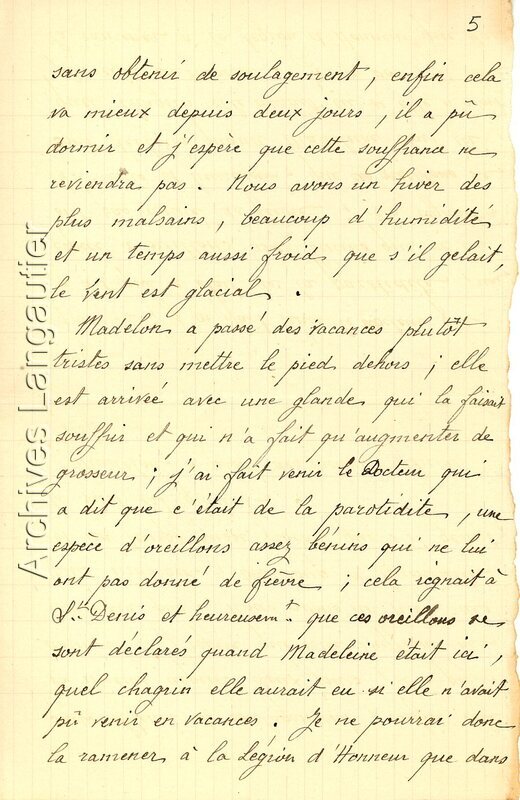 5
sans obtenir de soulagement, enfin cela
va mieux depuis deux jours, il a pû
dormir et j'espère que cette souffrance ne
reviendra pas. Nous avons un hiver des
plus malsains, beaucoup d'humidité
et un temps aussi froid que s'il gelait,
le vent est glacial.
Madelon a passé des vacances plutôt
tristes sans mettre le pied dehors ; elle
est arrivée avec une glande qui la faisait
souffrir et qui n'a fait qu'augmenter de
grosseur ; j'ai fait venir le Docteur qui
a dit que c'était de la parotidite, une
espèce d'oreillons assez bénins qui ne lui
ont pas donné de fièvre ; cela régnait à
St. Denis et heureusemt. que ces oreillons se
sont déclarés quand Madeleine était ici,
quel chagrin elle aurait eu si elle n'avait
pû venir en vacances. Je ne pourrai donc
la ramener à la Légion d'Honneur que dans
Archives Langautier